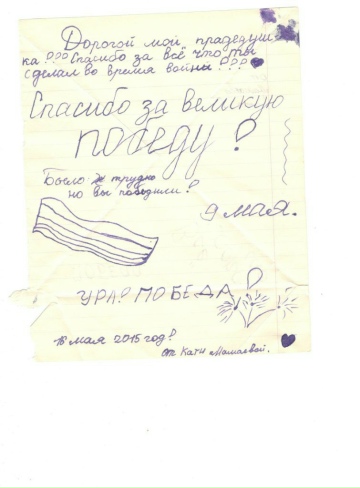 Дорогой мой прадедуш
ка!!! Спасибо за всё что ты
сделал во время войны!!!
Спасибо за великую
победу!
Было трудно
но вы победили!
9 мая.
УРА! ПОБЕДА!
16 мая 2015 год!
от Кати Мамаевой.